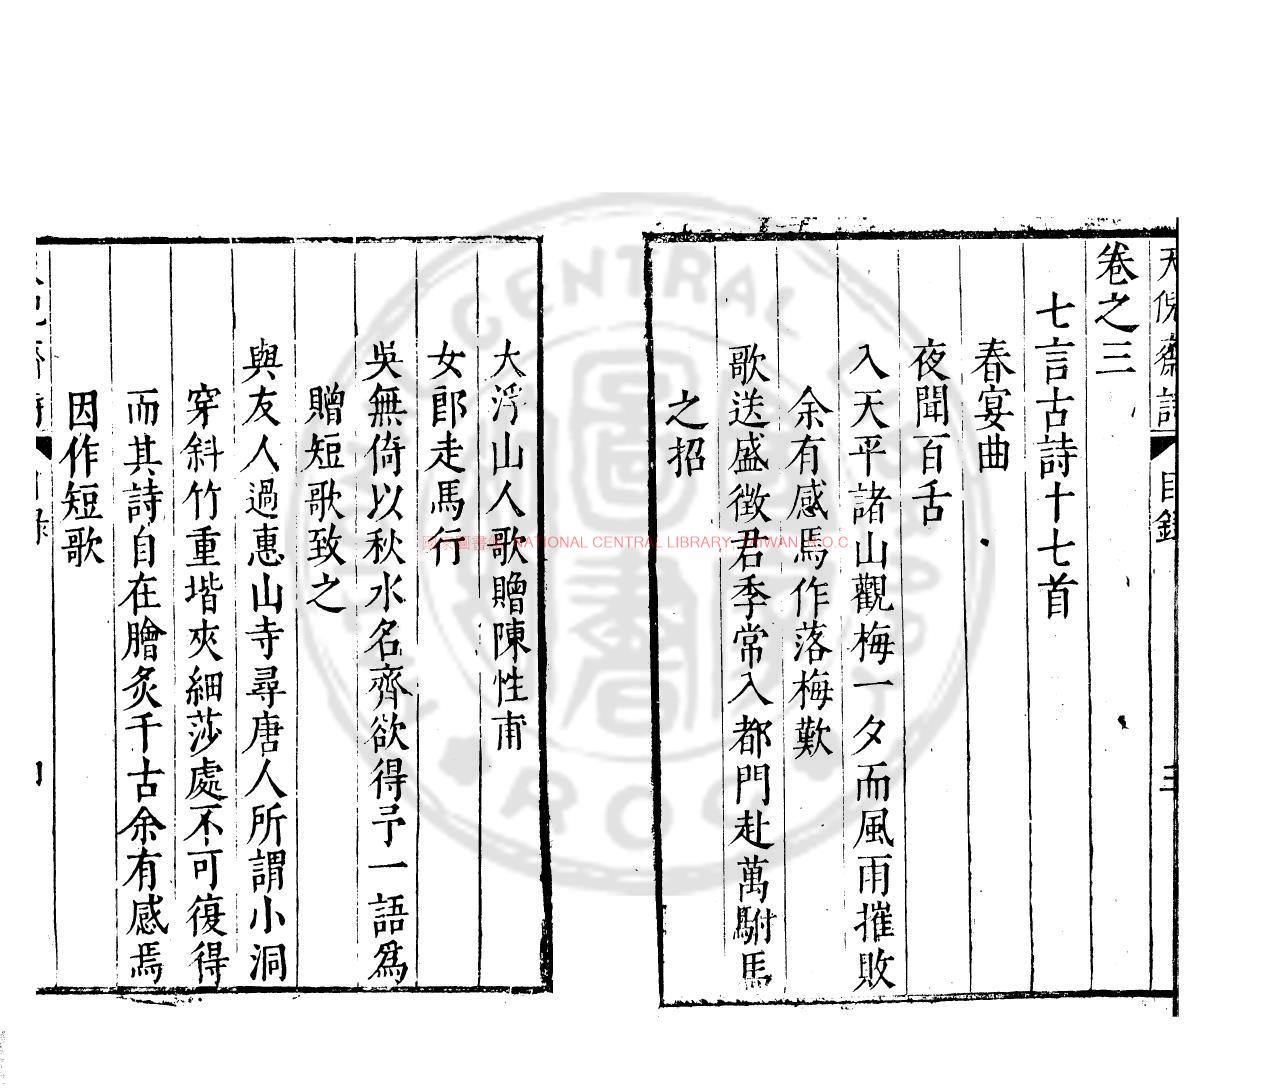 天倪齋詩 目錄 三
卷之三
七言古詩十七首
春宴曲
夜聞百舌
入天平諸山觀梅一夕而風雨摧敗
余有感焉作落梅歎
歌送盛徵君季常入都門赴萬駙馬
之招
大浮山人歌贈陳性甫
女郎走馬行
吳無倚以秋水名齊欲得予一語爲
贈短歌致之
與友人過惠山寺尋唐人所謂小洞
穿斜竹重堦夾細莎處不可復得
而其詩自在膾炙千古余有感焉
因作短歌
NATIONAL CENTRAL LIBRARY, TAIWAN, R.O.C.